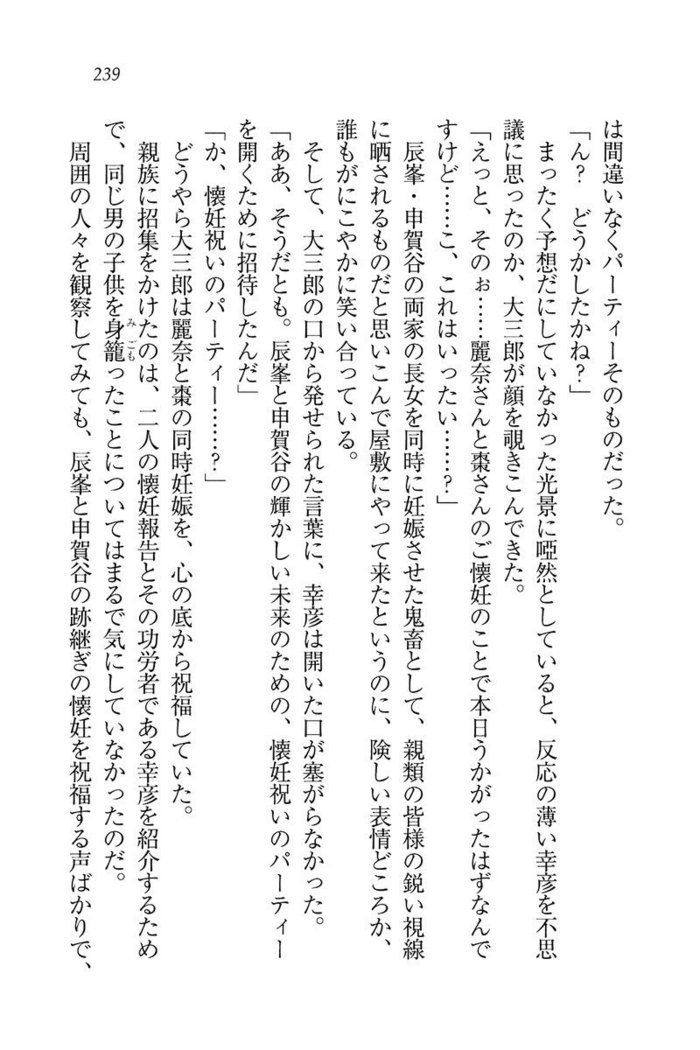 239
は間違いなくパーティーそのものだった。
「ん？　どうかしたかね？」
まったく予想だにしていなかった光景に啞然としていると、反応の薄い幸彦を不思
議に思ったのか、大三郎が顔を覗きこんできた。
「えっと、そのぉ……麗奈さんと棗さんのご懐妊のことで本日うかがったはずなんで
すけど……こ、これはいったい……？」
辰峯・申賀谷の両家の長女を同時に妊娠させた鬼畜として、親類の皆様の鋭い視線
に晒されるものだと思いこんで屋敷にやって来たというのに、険しい表情どころか、
誰もがにこやかに笑い合っている。
そして、大三郎の口から発せられた言葉に、幸彦は開いた口が塞がらなかった。
「ああ、そうだとも。辰峯と申賀谷の輝かしい未来のための、懐妊祝いのパーティー
を開くために招待したんだ」
「か、懐妊祝いのパーティー……？」
どうやら大三郎は麗奈と棗の同時妊娠を、心の底から祝福していた。
親族に招集をかけたのは、二人の懐妊報告とその功労者である幸彦を紹介するため
で、同じ男の子供を身籠ったことについてはまるで気にしていなかったのだ。
周囲の人々を観察してみても、辰峯と申賀谷の跡継ぎの懐妊を祝福する声ばかりで、